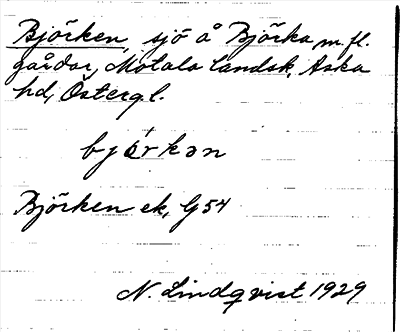 Björken, sjö å Björka m.fl.
gårdar, Motala landsk, Aska
hd, Östergl.
björkən
Björken ek, G54
N. Lindqvist 1929